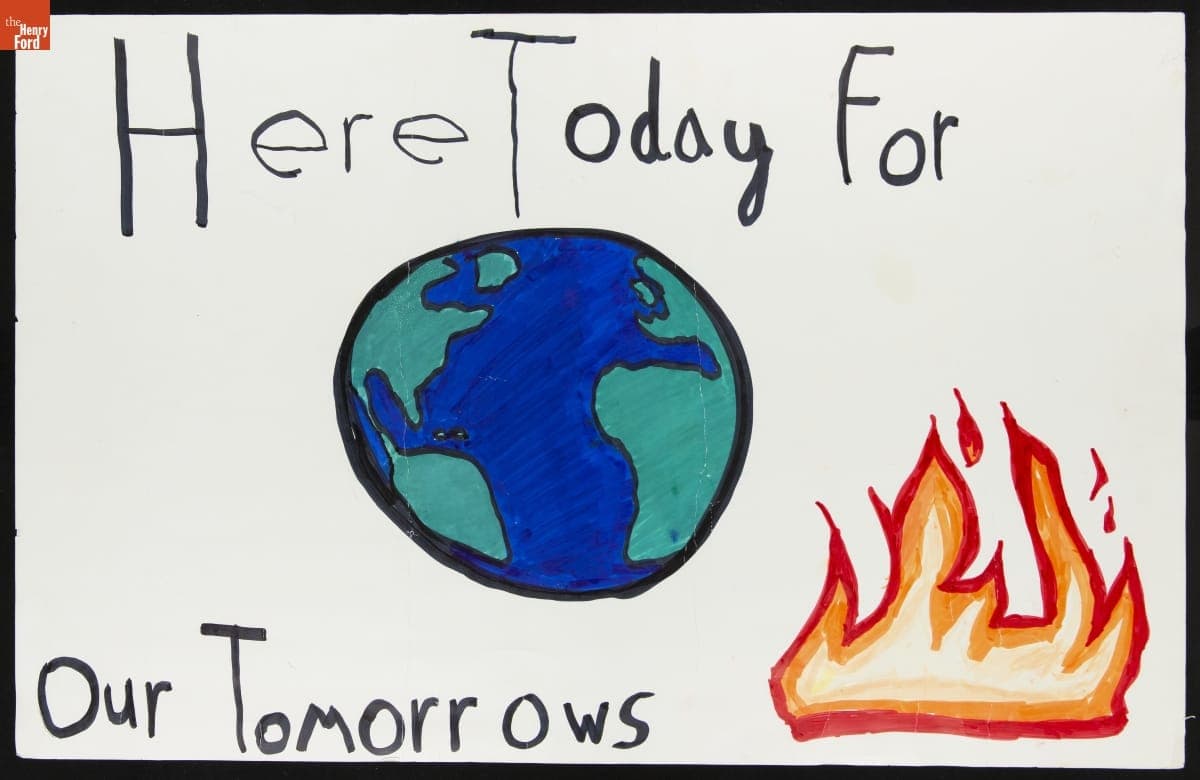 the
Henry
Ford
Here Today For
Our Tomorrows